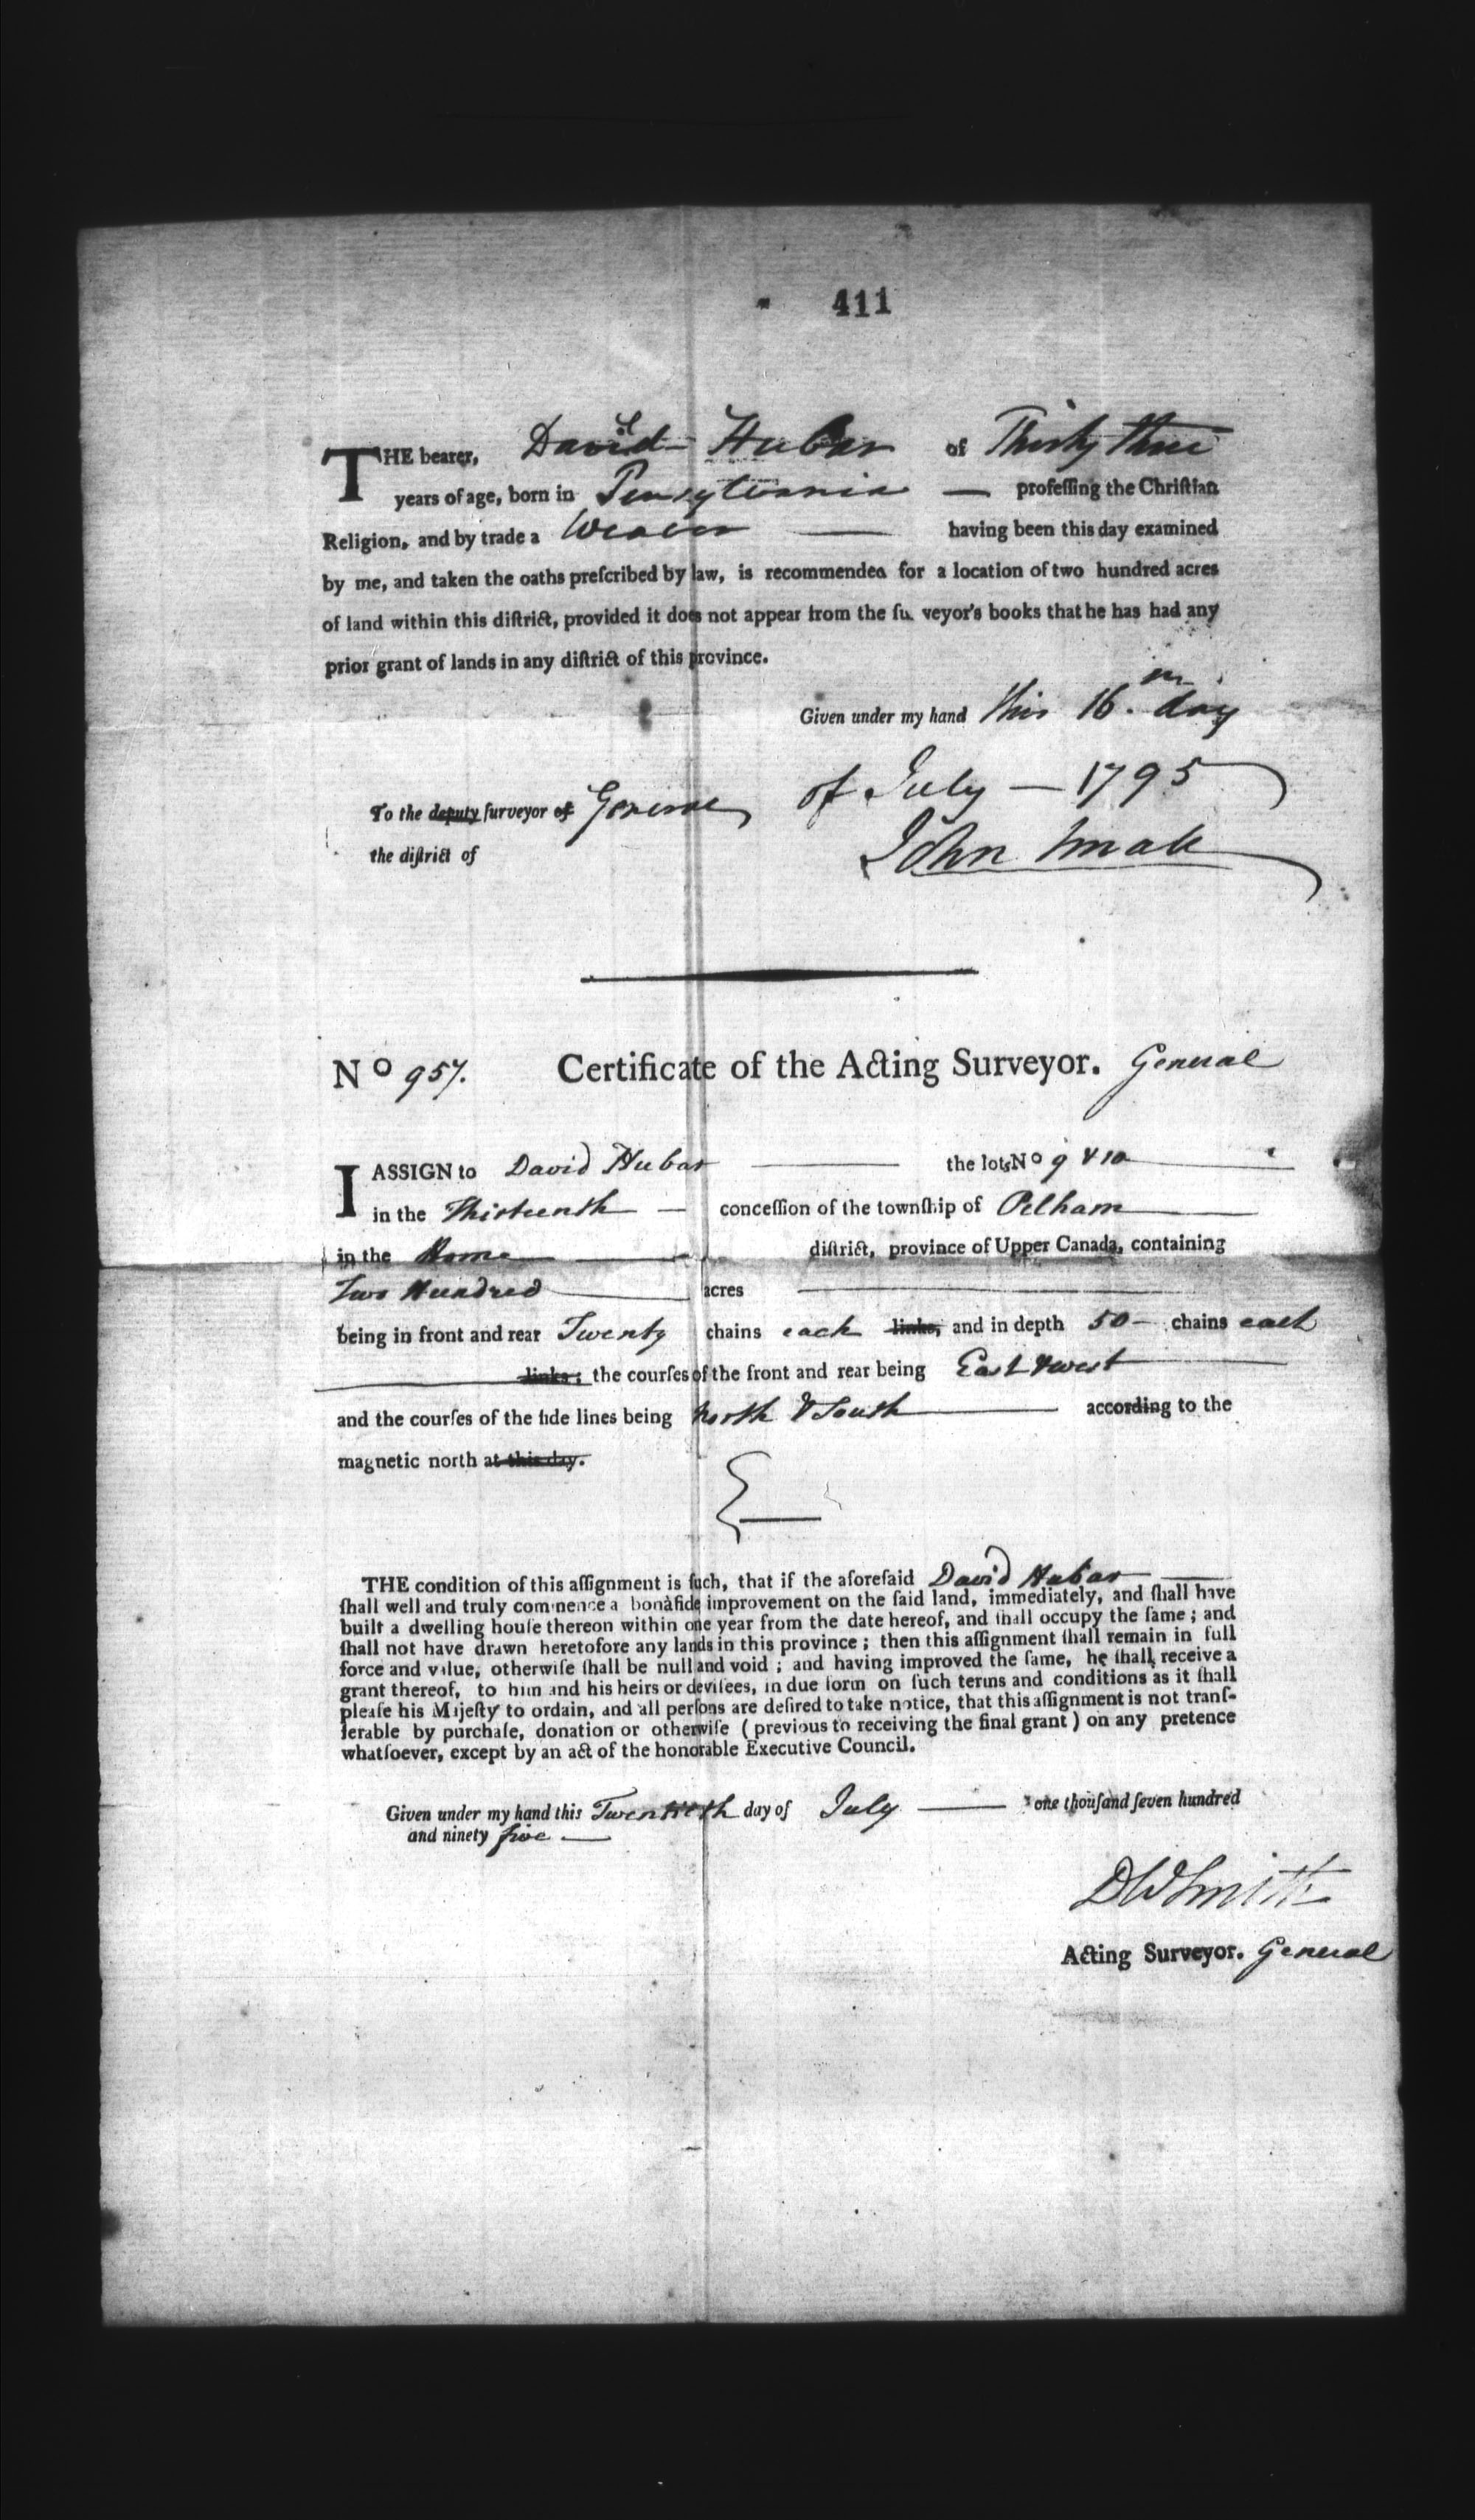 411
THE bearer, David Hubar of Thirty three
years of age, born in Pensylvania — profeſſing the Chriſtian
Religion, and by trade a Weaver — having been this day examined
by me, and taken the oaths preſcribed by law, is recommended for a location of two hundred acres
of land within this diſtrict, provided it does not appear from the ſurveyor's books that he has had any
prior grant of lands in any diſtrict of this province.
Given under my hand this 16. day
of July — 1795
To the deputy ſurveyor of General
the diſtrict of
John Small
No 957. Certificate of the Acting Surveyor. General
I ASSIGN to David Hubar — the lots No 9 & 10
in the Thirteenth — conceſſion of the townſhip of Pelham
in the Home diſtrict, province of Upper Canada, containing
Two Hundred acres
being in front and rear Twenty chains each links, and in depth 50 — chains each
links; the courſes of the front and rear being East & west
and the courſes of the ſide lines being North & South according to the
magnetic north at this day.
THE condition of this aſſignment is ſuch, that if the aforeſaid David Hubar
ſhall well and truly commence a bonàfide improvement on the ſaid land, immediately, and ſhall have
built a dwelling houſe thereon within one year from the date hereof, and ſhall occupy the ſame; and
ſhall not have drawn heretofore any lands in this province; then this aſſignment ſhall remain in full
force and value, otherwiſe ſhall be null and void; and having improved the ſame, he ſhall receive a
grant thereof, to him and his heirs or deviſees, in due form on ſuch terms and conditions as it ſhall
pleaſe his Majeſty to ordain, and all perſons are deſired to take notice, that this aſſignment is not tranſ-
ferable by purchaſe, donation or otherwiſe (previous to receiving the final grant) on any pretence
whatſoever, except by an act of the honorable Executive Council.
Given under my hand this Twentieth day of July — one thouſand ſeven hundred
and ninety five —
DW Smith
Acting Surveyor. General